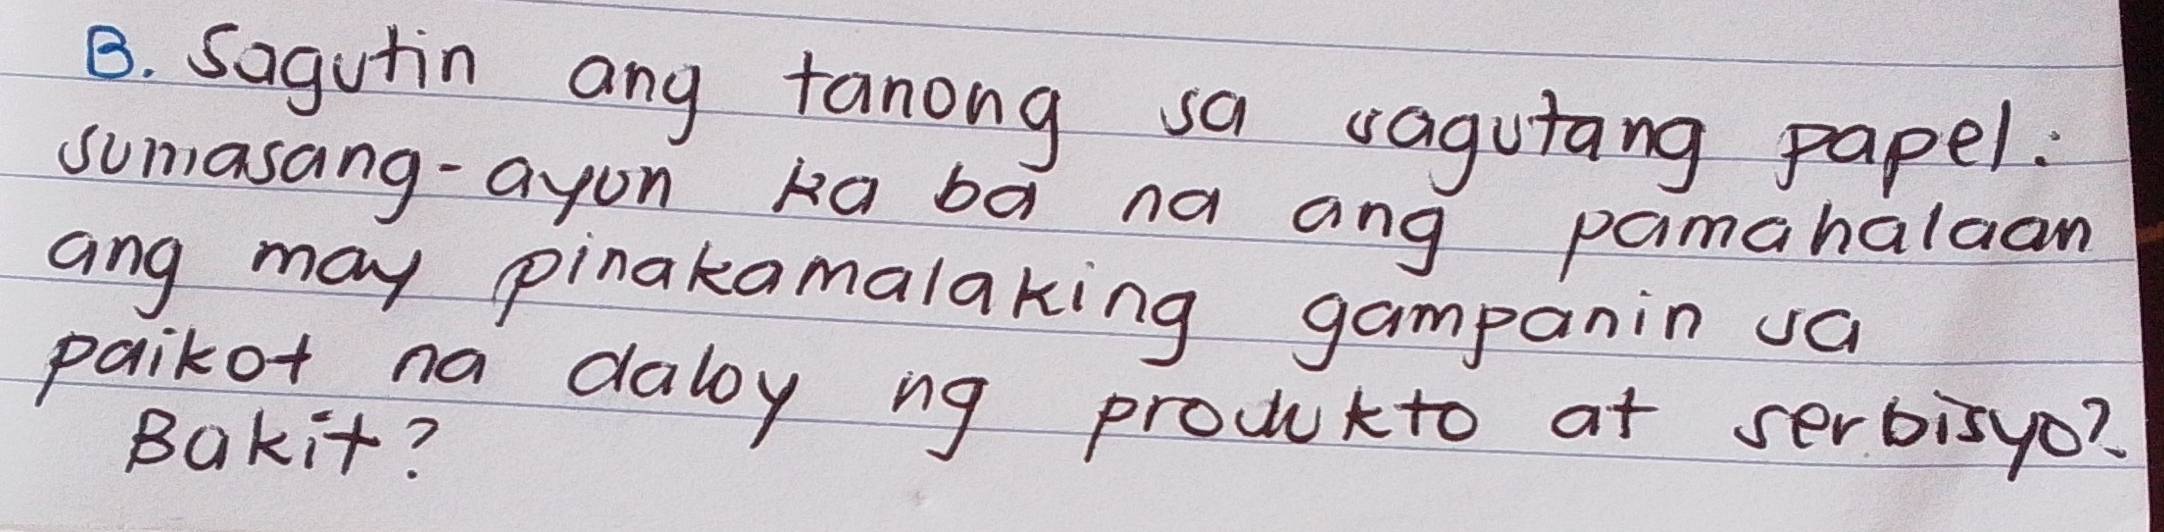 B. Sagutin ang tanong sa sagutang papel:
sumasang-ayon ka ba na ang pamahalaan
ang may pinakamalaking gampanin sa
paikot na daloy ng produkto at serbisyo?
Bakit?